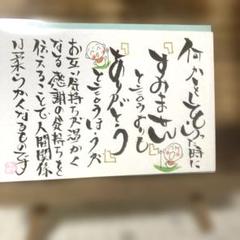 何かをしてもらった時に
「すみません」
と言うよりも
「ありがとう」
と言うほうが
お互い気持ちが温かく
なる感謝の気持ちを
伝えることで人間関係
は柔らかくなるものです